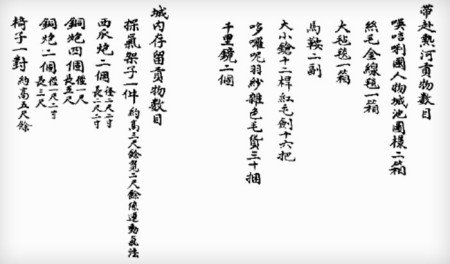 帶赴熱河貢物數目
㗲咭唎國人物城池圖樣二箱
絲毛金線毯一箱
大毡毯一箱
馬鞍二副
大小鎗十二桿紅毛劍十六把
哆囉呢羽紗雜色毛貨三十捆
千里鏡二個
城內存留貢物數目
探氣架子一件約高三尺餘寬二尺餘係運動氣法
西瓜炮二個徑二尺二寸長一尺二寸
銅炮四個徑一尺長五尺
銅炮二個徑一尺二寸長三尺
椅子一對約高五尺餘